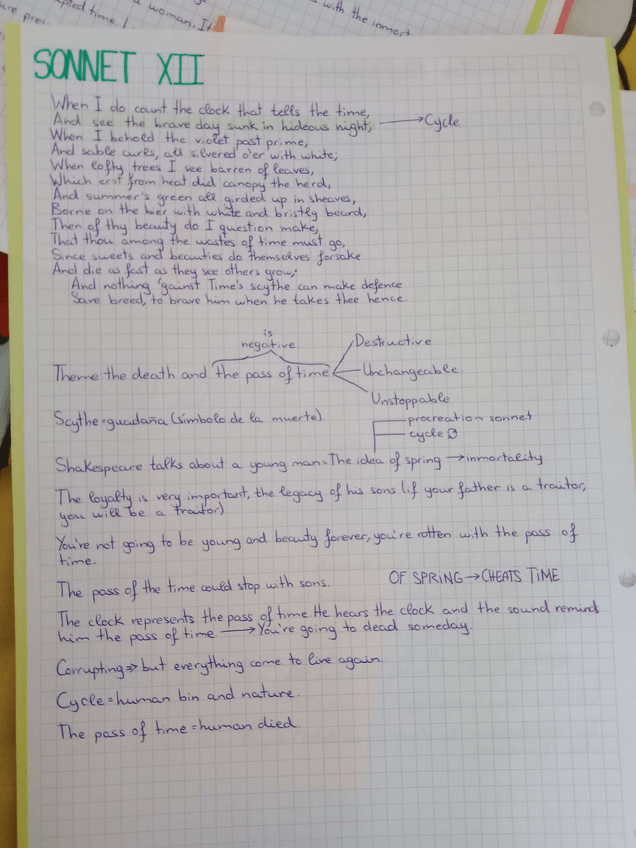 pted time. I
a woman. It
with the inmort
ure prev
SONNET XII
When I do count the clock that tells the time,
And see the brave day sunk in hideous night; → Cycle
When I behold the violet past prime,
And sable curls, all silvered o'er with white;
When lofty trees I see barren of leaves,
Which erst from heat did canopy the herd,
And summer's green all girded up in sheaves,
Borne on the bier with white and bristly beard,
Then of thy beauty do I question make,
That thou among the wastes of time must go,
Since sweets and beauties do themselves forsake
And die as fast as they see others grow;
And nothing 'gainst Time's scythe can make defence
Save breed, to brave him when he takes thee hence.
is
negative
Destructive
Theme the death and the pass of time
Unchangeable
Unstoppable
Scythe=guadaña (símbolo de la muerte)
procreation sonnet
cycle
Shakespeare talks about a young man=The idea of spring → inmortality
The loyalty is very important, the legacy of his sons (if your father is a traitor,
you will be a traitor).
You're not going to be young and beauty forever, you're rotten with the pass of
time.
The pass of the time could stop with sons.
OF SPRING → CHEATS TIME
The clock represents the pass of time. He hears the clock and the sound reminds
him the pass of time → You're going to dead someday.
Corrupting ⇒ but everything come to live again.
Cycle = human bin and nature.
The pass of time = human died.